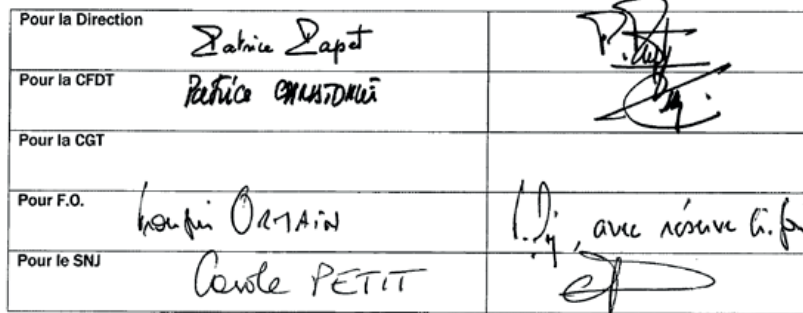 Pour la Direction
Patrice Papet
Pour la CFDT
Patrice
Pour la CGT
Pour F.O.
ORTAIN
, avec réserve
Pour le SNJ
Carole PETIT